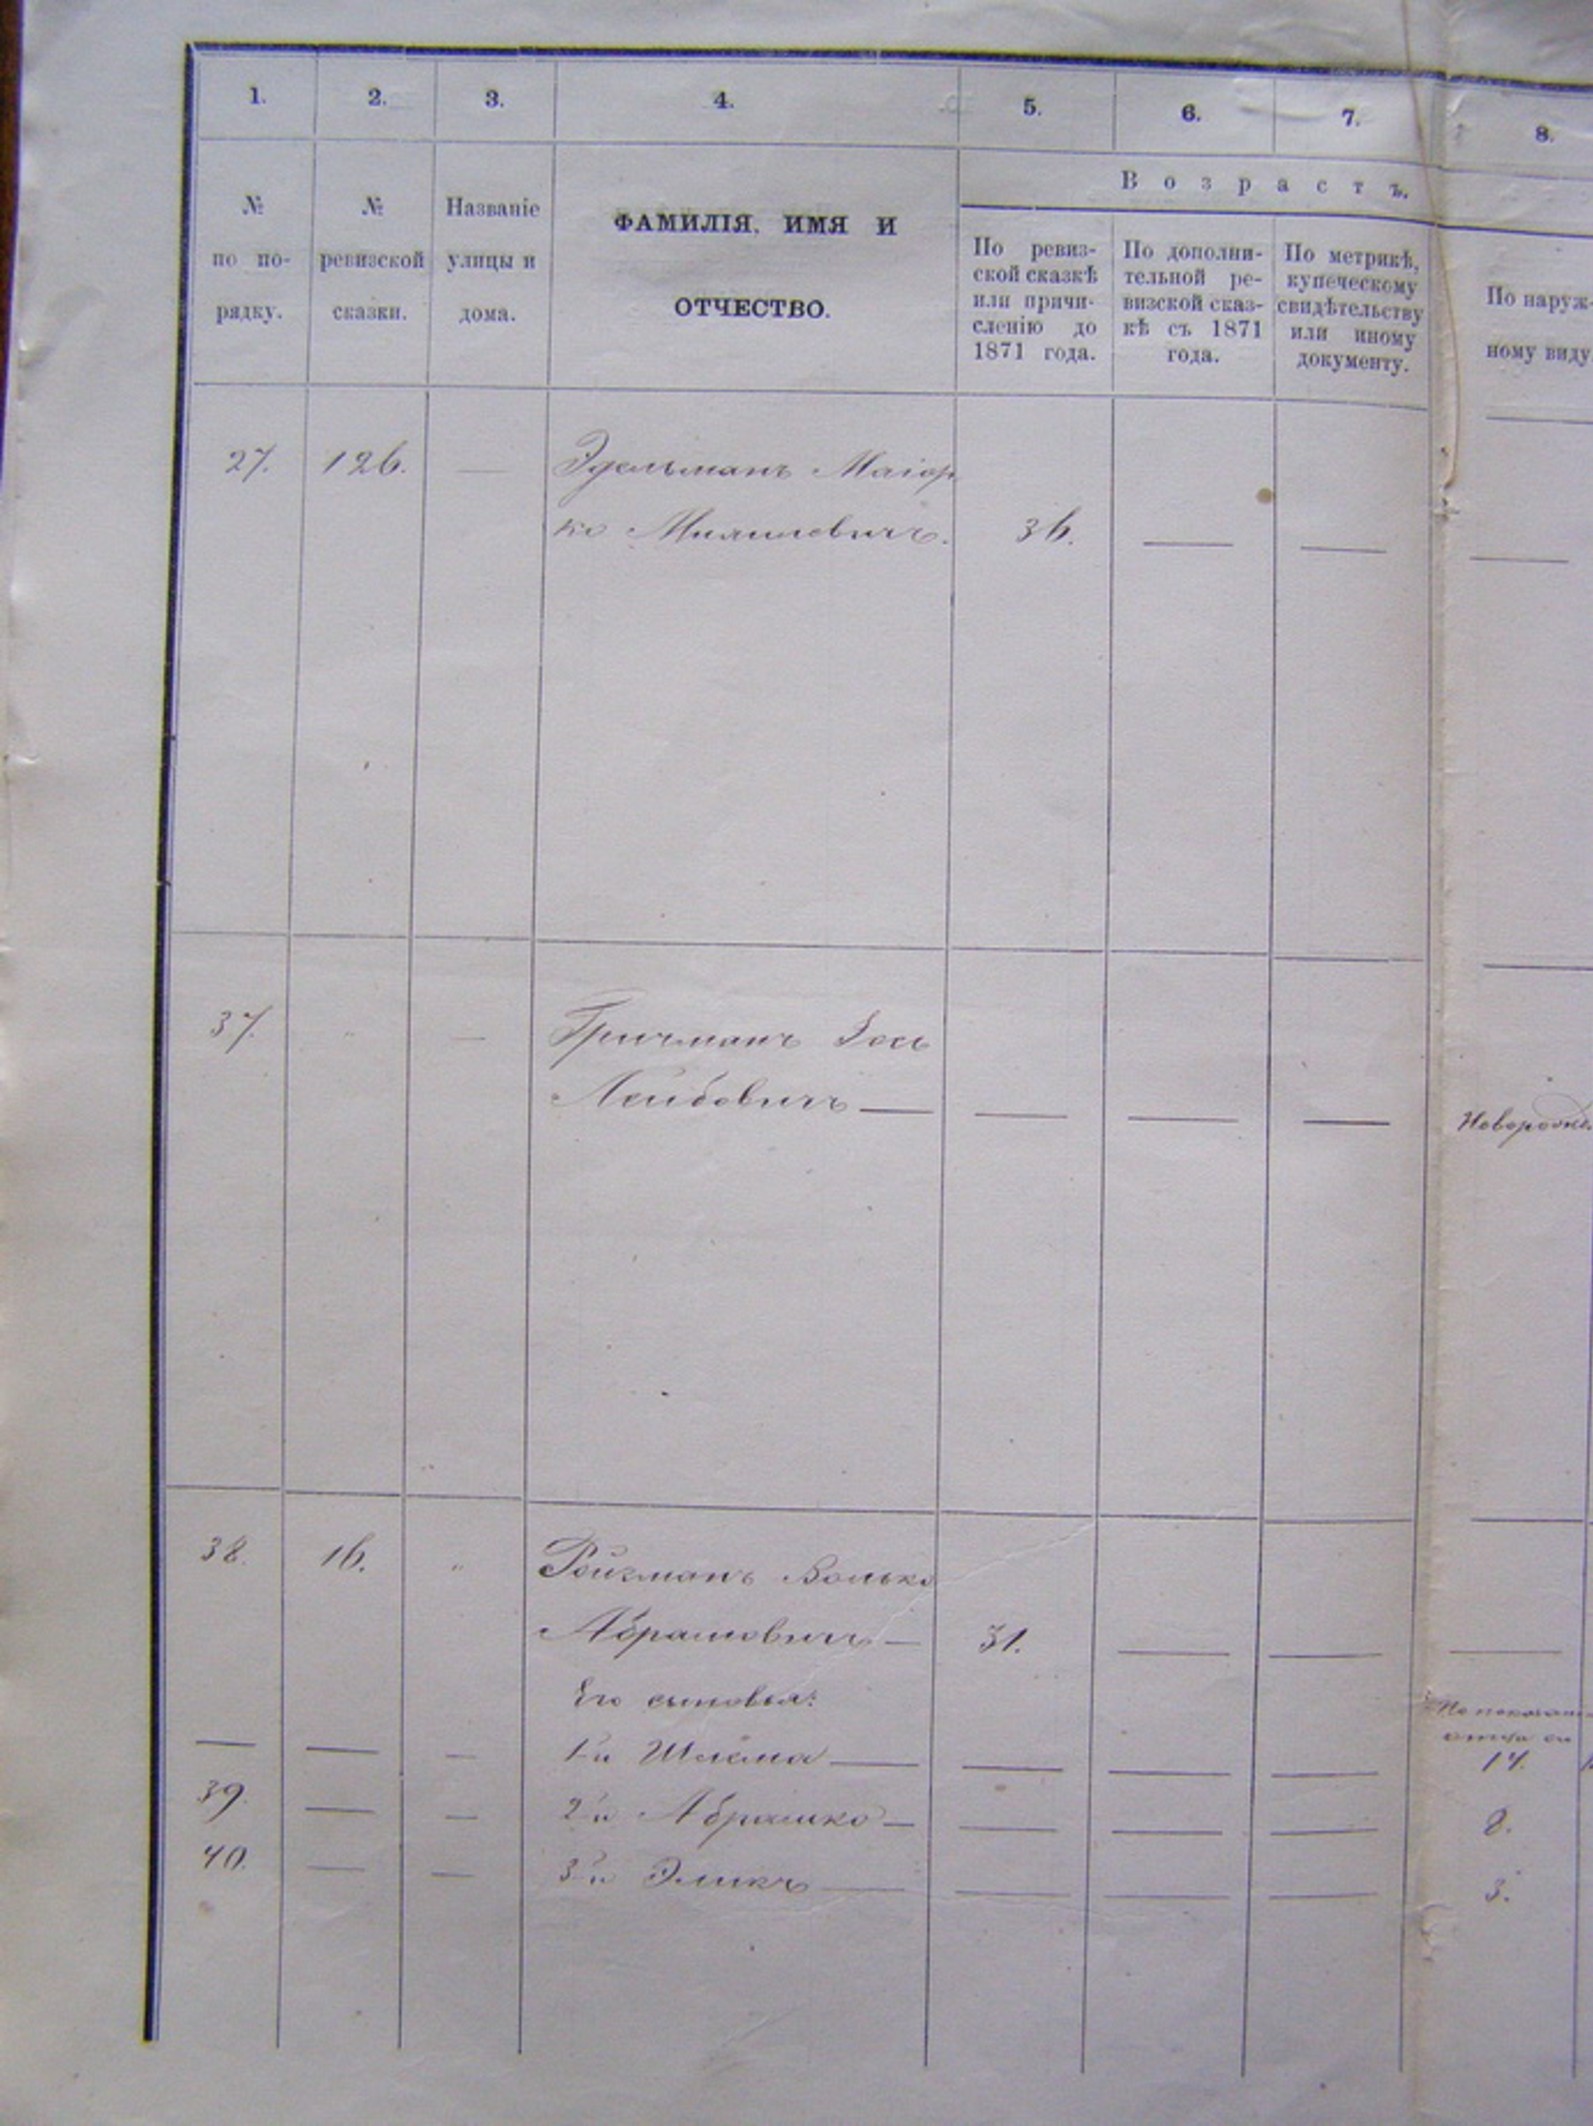 1. 2. 3. 4. 5. 6. 7. 8.
Возрастъ.
№
по по-
рядку.
№
ревизской
сказки.
Названіе
улицы и
дома.
ФАМИЛІЯ, ИМЯ И
ОТЧЕСТВО.
По ревиз-
ской сказкѣ
или причи-
сленію до
1871 года.
По дополни-
тельной ре-
визской сказ-
кѣ съ 1871
года.
По метрикѣ,
купеческому
свидѣтельству
или иному
документу.
По наруж-
ному виду
27. 126. — Эдельманъ Маіор
ко 36. — — —
37. " — Гричманъ Іось
Лейбовичъ — — — —
38. 16. " Ройзманъ Волько
Абрамовичъ — 31. — — —
Его сыновья:
По показан
отца
— — — 1й Шлема — — — — 14.
39. — — 2й Абрашко — — — — 8.
40. — — 3й Эликъ — — — — 3.